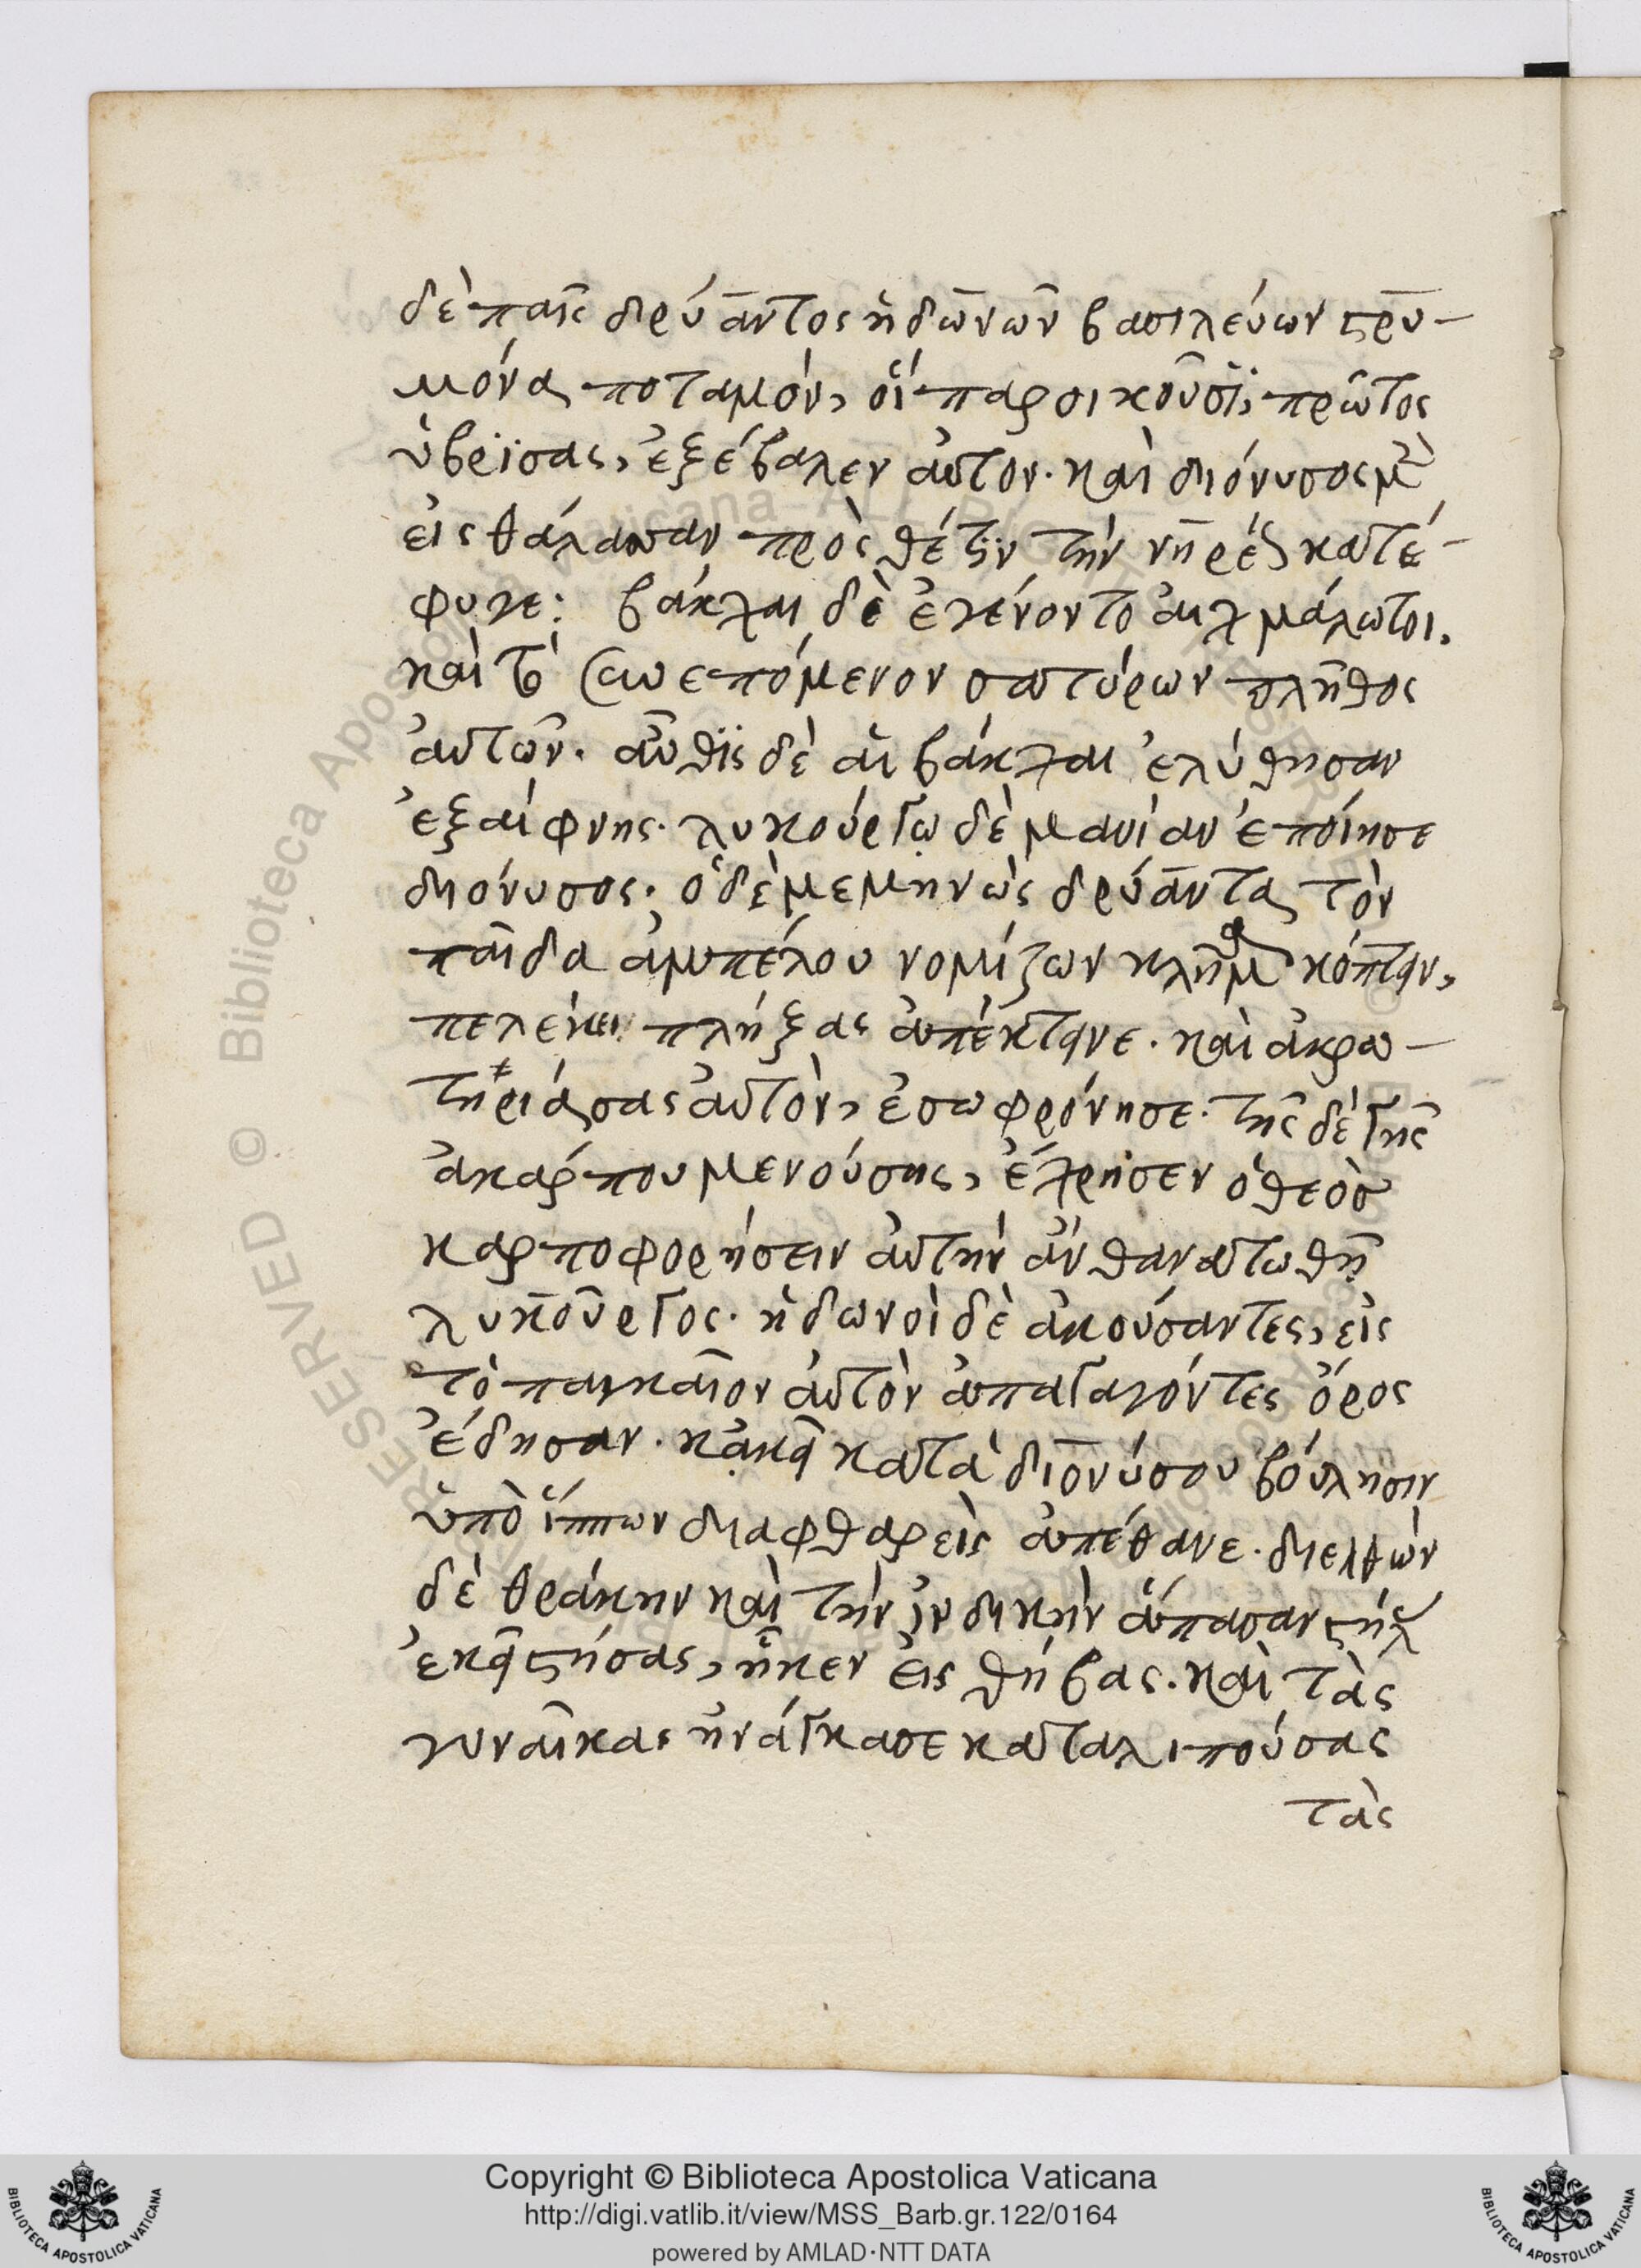 δὲ παῖς δρύαντος ἠδωνῶν βασιλεύων στρυ-
μόνα ποταμὸν, οἵ παροικοῦσϊ, πρῶτος
ὑβρίσας, ἐξέβαλεν αὐτον. καὶ διόνυσος μὲν
εἰς θάλασσαν πρὸς θέτιν τὴν νηρέως κατέ-
φυγε: βάκχαι δὲ ἐγένοντο αἰχμάλωτοι.
καὶ τὸ συνεπόμενον σατύρων πλῆθος
αὐτῶν. αὖθϊς δὲ αἱ βάκχαι ἐλύθησαν
ἐξαίφνης. λυκούργῳ δὲ μανίαν ἐποίησε
διόνυσος. ὁ δὲ μεμηνὼς δρύαντα τὸν
παῖδα ἀμπέλου νομίζων κλῆμα κόπτειν,
πελέκει πλήξας ἀπέκτεινε. καὶ ἀκρω-
τηριάσας αὐτὸν, ἐσωφρόνησε. τῆς δὲ γῆς
ἀκάρπου μενούσης, ἔχρησεν ὁ θεὸς
καρποφορήσειν αὐτὴν ἂν θανατωθῇ
λυκοῦργος. ἠδωνοὶ δὲ ἀκούσαντες, εἰς
τὸ παγκαῖον αὐτὸν ἀπαγαγόντες ὄρος
ἔδησαν. κᾀκεῖ κατὰ διονύσου βούλησιν
ὑπὸ ἵππων διαφθαρεὶς ἀπέθανε. διελθὼν
δὲ θράκην καὶ τὴν ἰνδικὴν ἅπασαν στήλας
ἐκεῖ στήσας, ἧκεν εἰς θήβας. καὶ τὰς
γυναῖκας ἠνάγκασε καταλιπούσας
τὰς
Copyright © Biblioteca Apostolica Vaticana
http://digi.vatlib.it/view/MSS_Barb.gr.122/0164
powered by AMLAD·NTT DATA